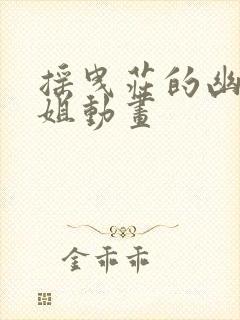 採曳莊的幽
姐動畫
金乖乖